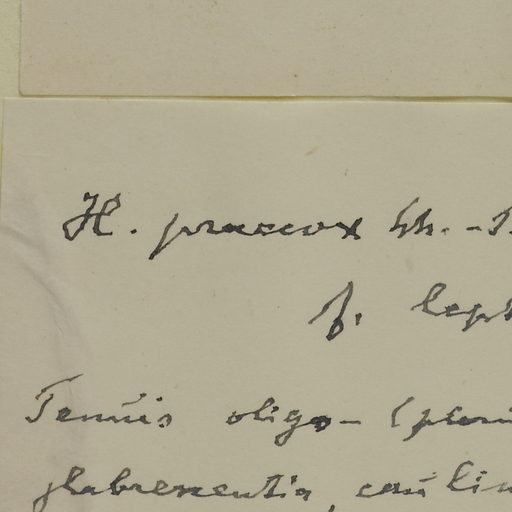 H. praecox Sch.-B
f. lept
Tenuis oligo- (pleni
glabrescentia, caulin